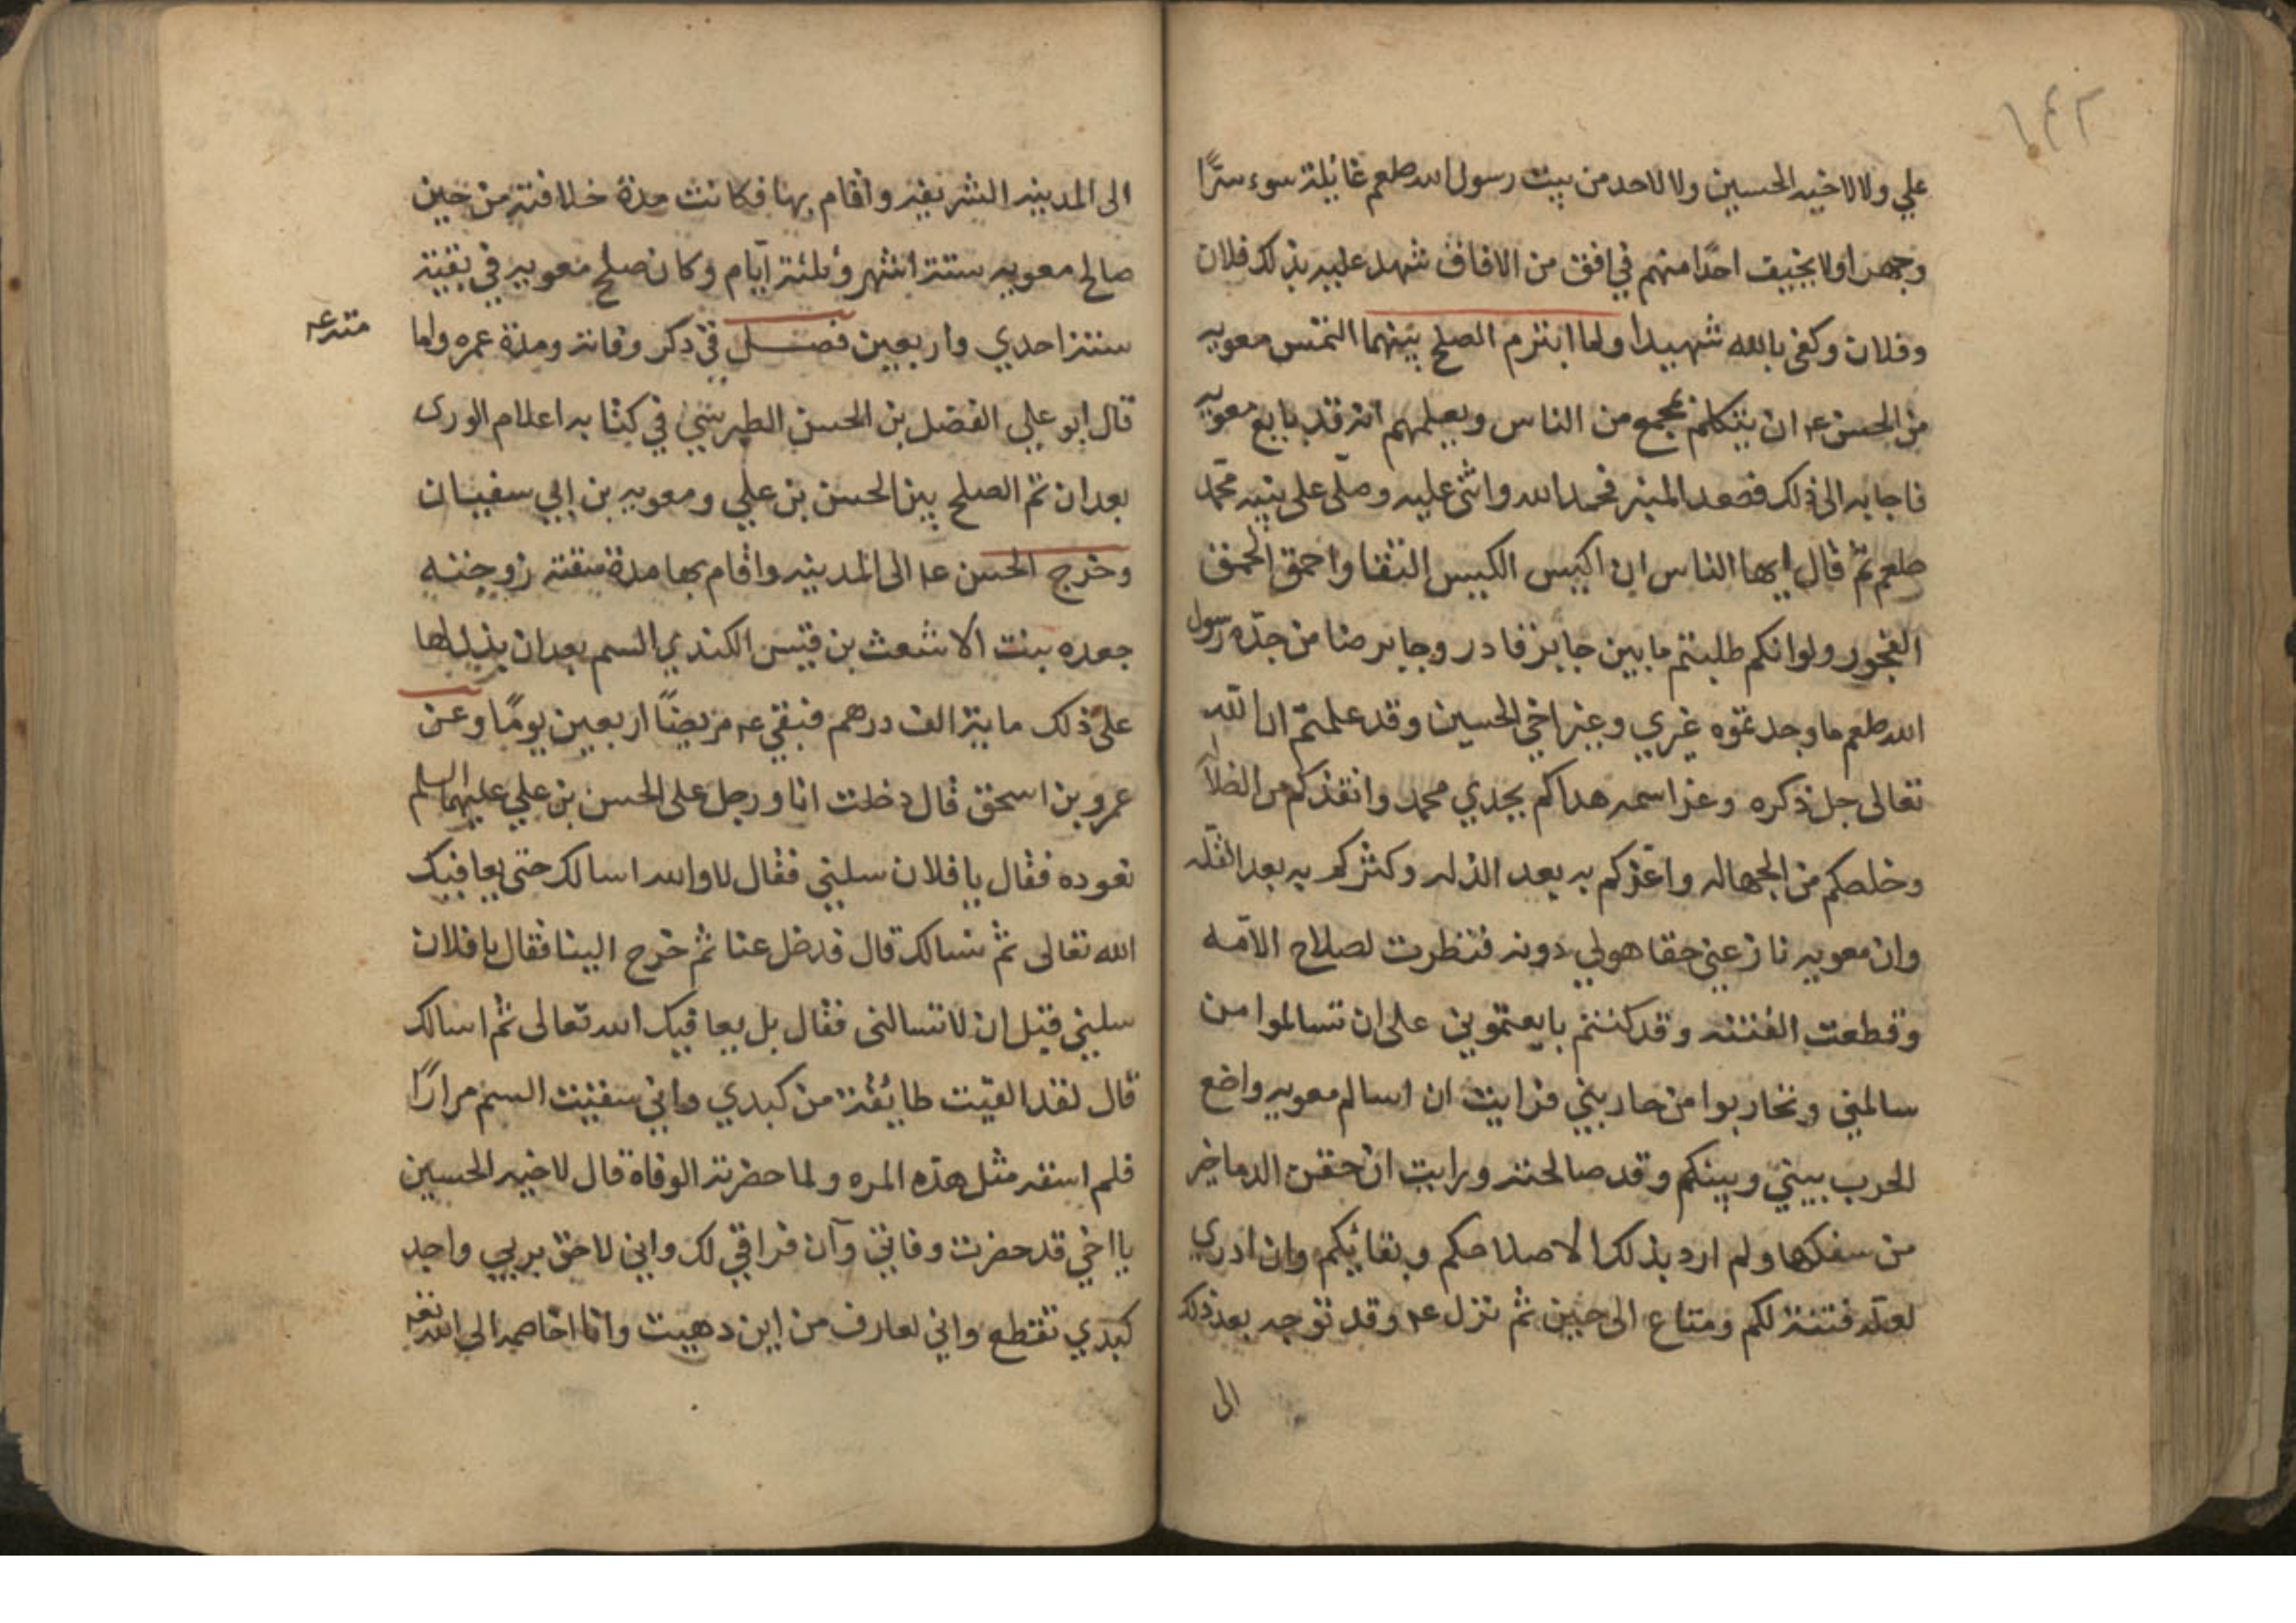 ١٤٢
علي ولا لاخيه الحسين ولا لاحد من بيت رسول الله صلعم غائلة سوء سرًّا
وجهرا ولا يخيف احدًا منهم في افق من الافاق شهد عليه بذلك فلان
وفلان وكفى بالله شهيدا ولما ابترم الصلح بينهما التمس معويه
من الحسن عم ان يتكلم بمجمع من الناس ويعلمهم انه قد بايع معويه
فاجابه الى ذلك فصعد المنبر فحمد الله واثنى عليه وصلى على نبيه محمد
صلعم ثم قال ايها الناس ان اكيس الكيس التقا واحمق الحمق
الفجور ولو انكم طلبتم ما بين جابرقا در وجابرصا من جده رسول
الله صلعم ما وجدتموه غيري وغير اخي الحسين وقد علمتم ان الله
تعالى جل ذكره وعز اسمه هداكم بجدي محمد وانقذكم من الضلا
وخلصكم من الجهاله واعزكم به بعد الذله وكثركم به بعد القله
وان معويه نازعني حقا هو لي دونه فنظرت لصلاح الامه
وقطعت الفتنه وقد كنتم بايعتموني على ان تسالموا من
سالمني وتحاربوا من حاربني فرايت ان اسالم معويه واضع
الحرب بيني وبينكم وقد صالحته ورايت ان حقن الدما خير
من سفكها ولم ارد بذلك الا صلاحكم وبقائكم وان ادري
لعله فتنة لكم ومتاع الى حين ثم نزل عم وقد توجه بعد ذلك
الى
الى المدينه الشريفه واقام بها فكانت مدة خلافته من حين
صالح معويه ستة اشهر وثلثة ايام وكان صلح معويه في بقية
سنة احدي واربعين فصل في ذكر وفاته ومدة عمره واما
قال ابو علي الفضل بن الحسن الطبرسي في كتابه اعلام الورى
بعد ان تم الصلح بين الحسن بن علي ومعويه بن ابي سفيان
وخرج الحسن عم الى المدينه واقام بها مدة سقته زوجته
جعده بنت الاشعث بن قيس الكندي السم بعد ان بذل لها
على ذلك ماية الف درهم فبقي عم مريضًا اربعين يومًا وعن
عمرو بن اسحق قال دخلت انا ورجل على الحسن بن علي عليهما السلم
نعوده فقال يا فلان سلني فقال لا والله اسالك حتى يعافيك
الله تعالى ثم نسالك قال فدخل عنا ثم خرج الينا فقال يا فلان
سلني قبل ان لا تسالنى فقال بل يعافيك الله تعالى ثم اسالك
قال لقد القيت طائفة من كبدي واني سقيت السم مرارًا
فلم اسقه مثل هذه المره ولما حضرته الوفاة قال لاخيه الحسين
يا اخي قد حضرت وفاتي وآن فراقي لك واني لاحق بربي واجد
كبدي تقطع واني لعارف من اين دهيت وانا اخاصمه الى الله تعه